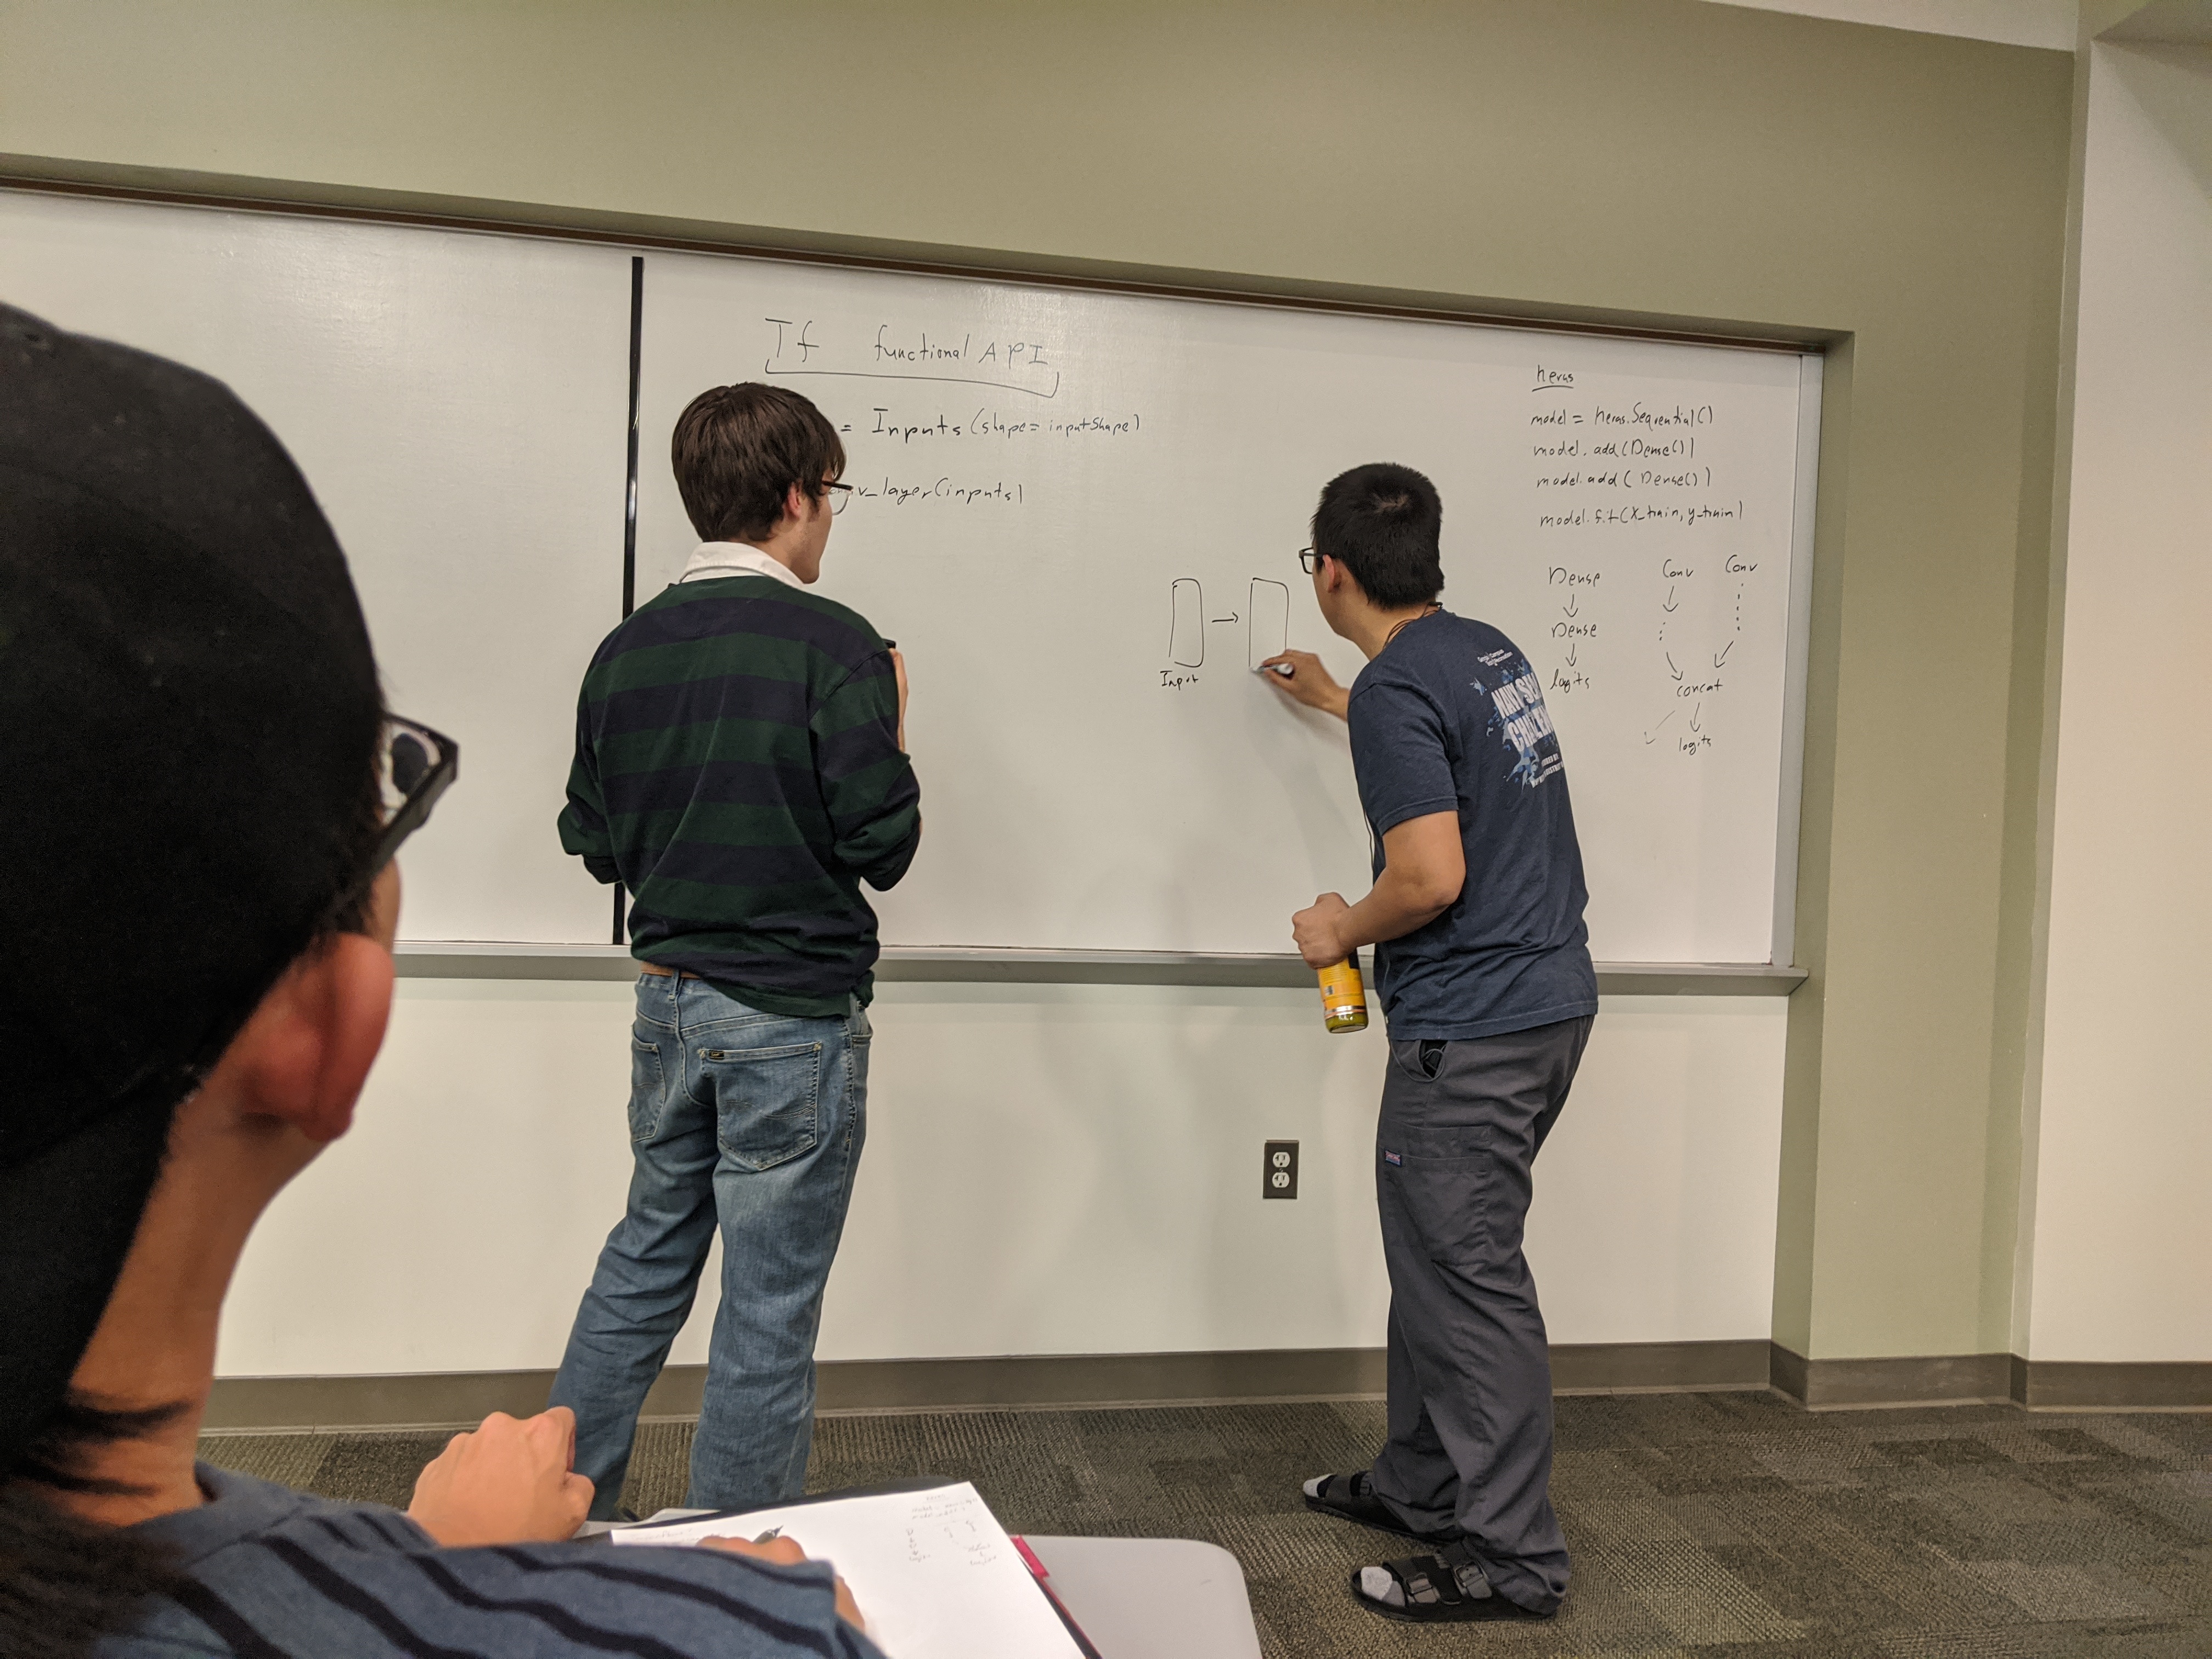 Tf functional API
= Inputs (shape = inputShape)
v_layer(inputs)
Input
keras
model = keras.Sequential()
model.add(Dense())
model.add(Dense())
model.fit(X_train, y_train)
Dense
Dense
logits
Conv Conv
concat
logits